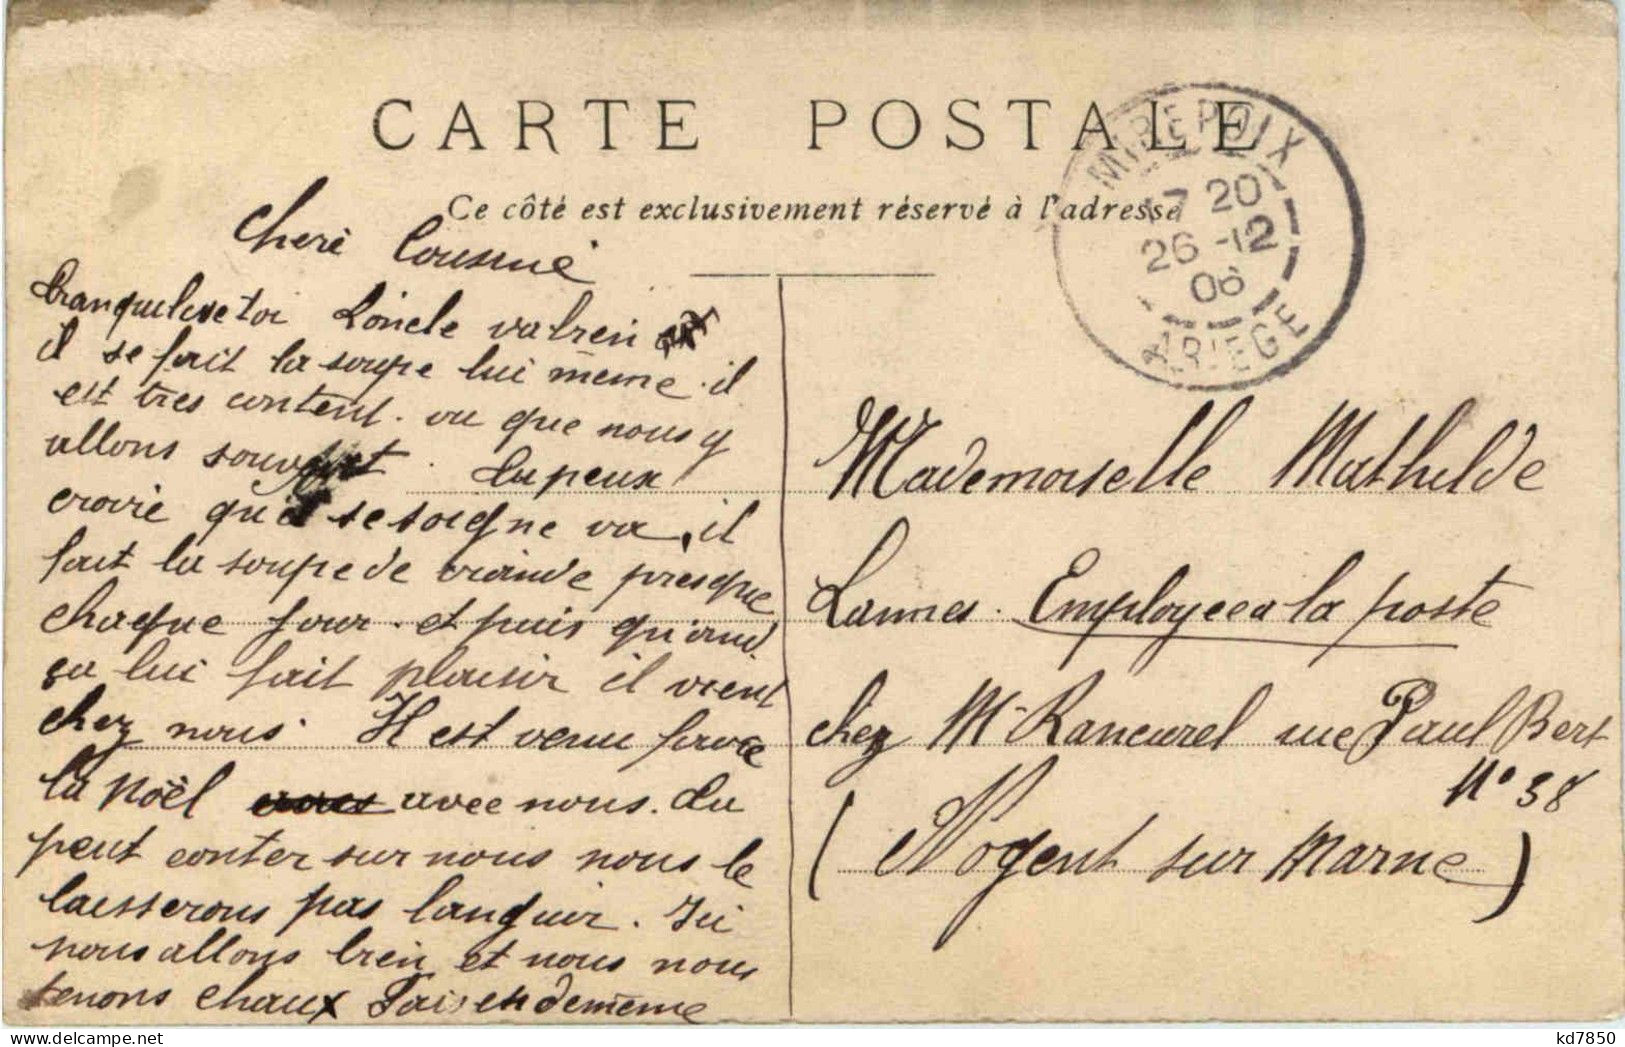 CARTE POSTALE
Ce côté est exclusivement réservé à l'adresse
MIREPOIX
17 20
26 -12
06
ARIEGE
Cheré Cousiné
tranquilise toi Loncle va bien
il se fait la soupe lui même. il
est tres content. vu que nous y
allons souvent. tu peux
croire qu'il se soigne va, il
fait la soupe de viande presque
chaque jour. et puis quand
sa lui fait plaisir il vient
chez nous. Il est venu faire
la Noël avec nous. tu
peut conter sur nous nous le
laisserons pas languir. Ici
nous allons bien et nous nous
tenons chaux Fais en de même
Mademoiselle Mathilde
Lannes. Employee a la poste
chez Mr Rancurel rue Paul Bert
N° 38
(Nogent sur Marne)
kd7850